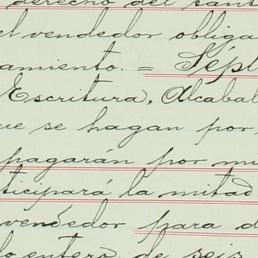 derecho del san
el vendedor obliga
amiento. = Sépt
Escritura, Alcabal
ue se hagan por
pagarán por mi
ticipará la mitad
vendedor para d
lo entero de seis